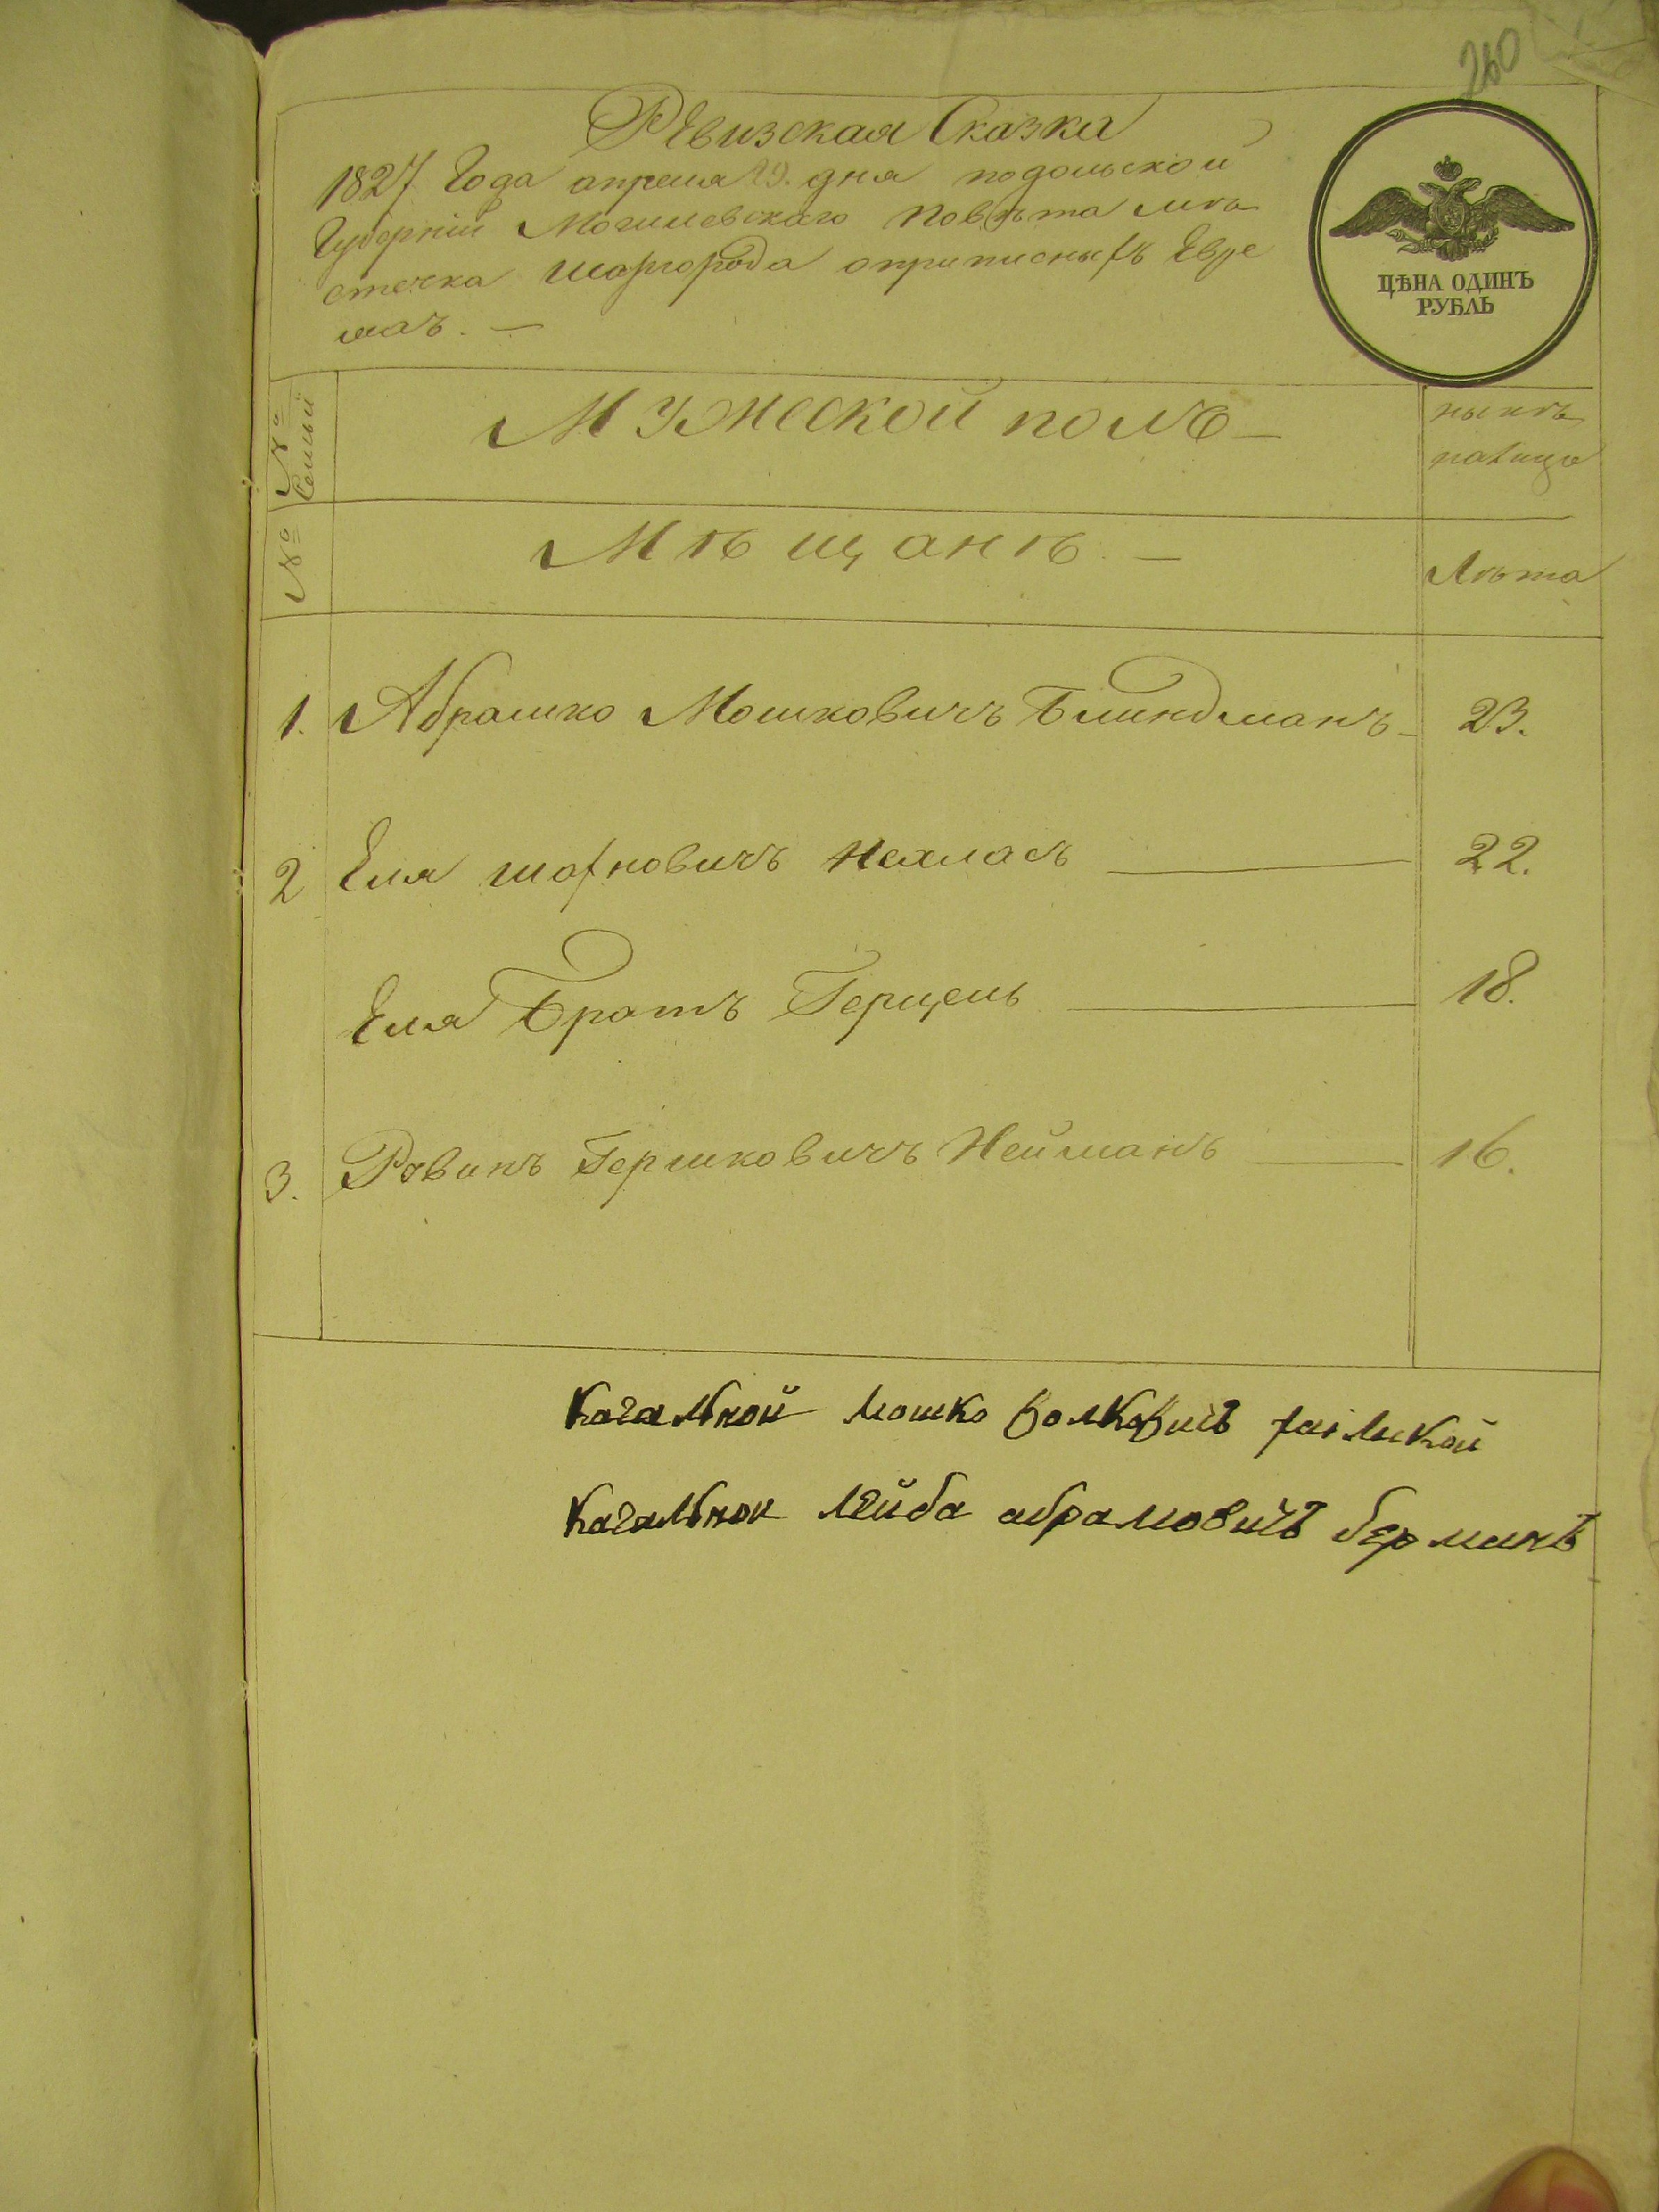 260
Ревизская Сказка
1827 Года апреля 29. дня подольской
Губерніи Могилевскаго Повѣта мѣ
стечка Шаргорода оприписныхъ Евре
яхъ. —
ЦѢНА ОДИНЪ
РУБЛЬ
№ Семьи
Мужеской полъ —
нынѣ
налицо
№
Мѣщанѣ. —
Лѣта
1. Абрамко Мошковичъ Блиндманъ 23.
2 Еля Шахновичъ 22.
Еля Братъ Герцель 18.
3. Рувинъ Гершковичъ Нейманъ 16.
Кагальной Мошко Волковичъ
Кагальной Лейба Абрамовичъ Берманъ